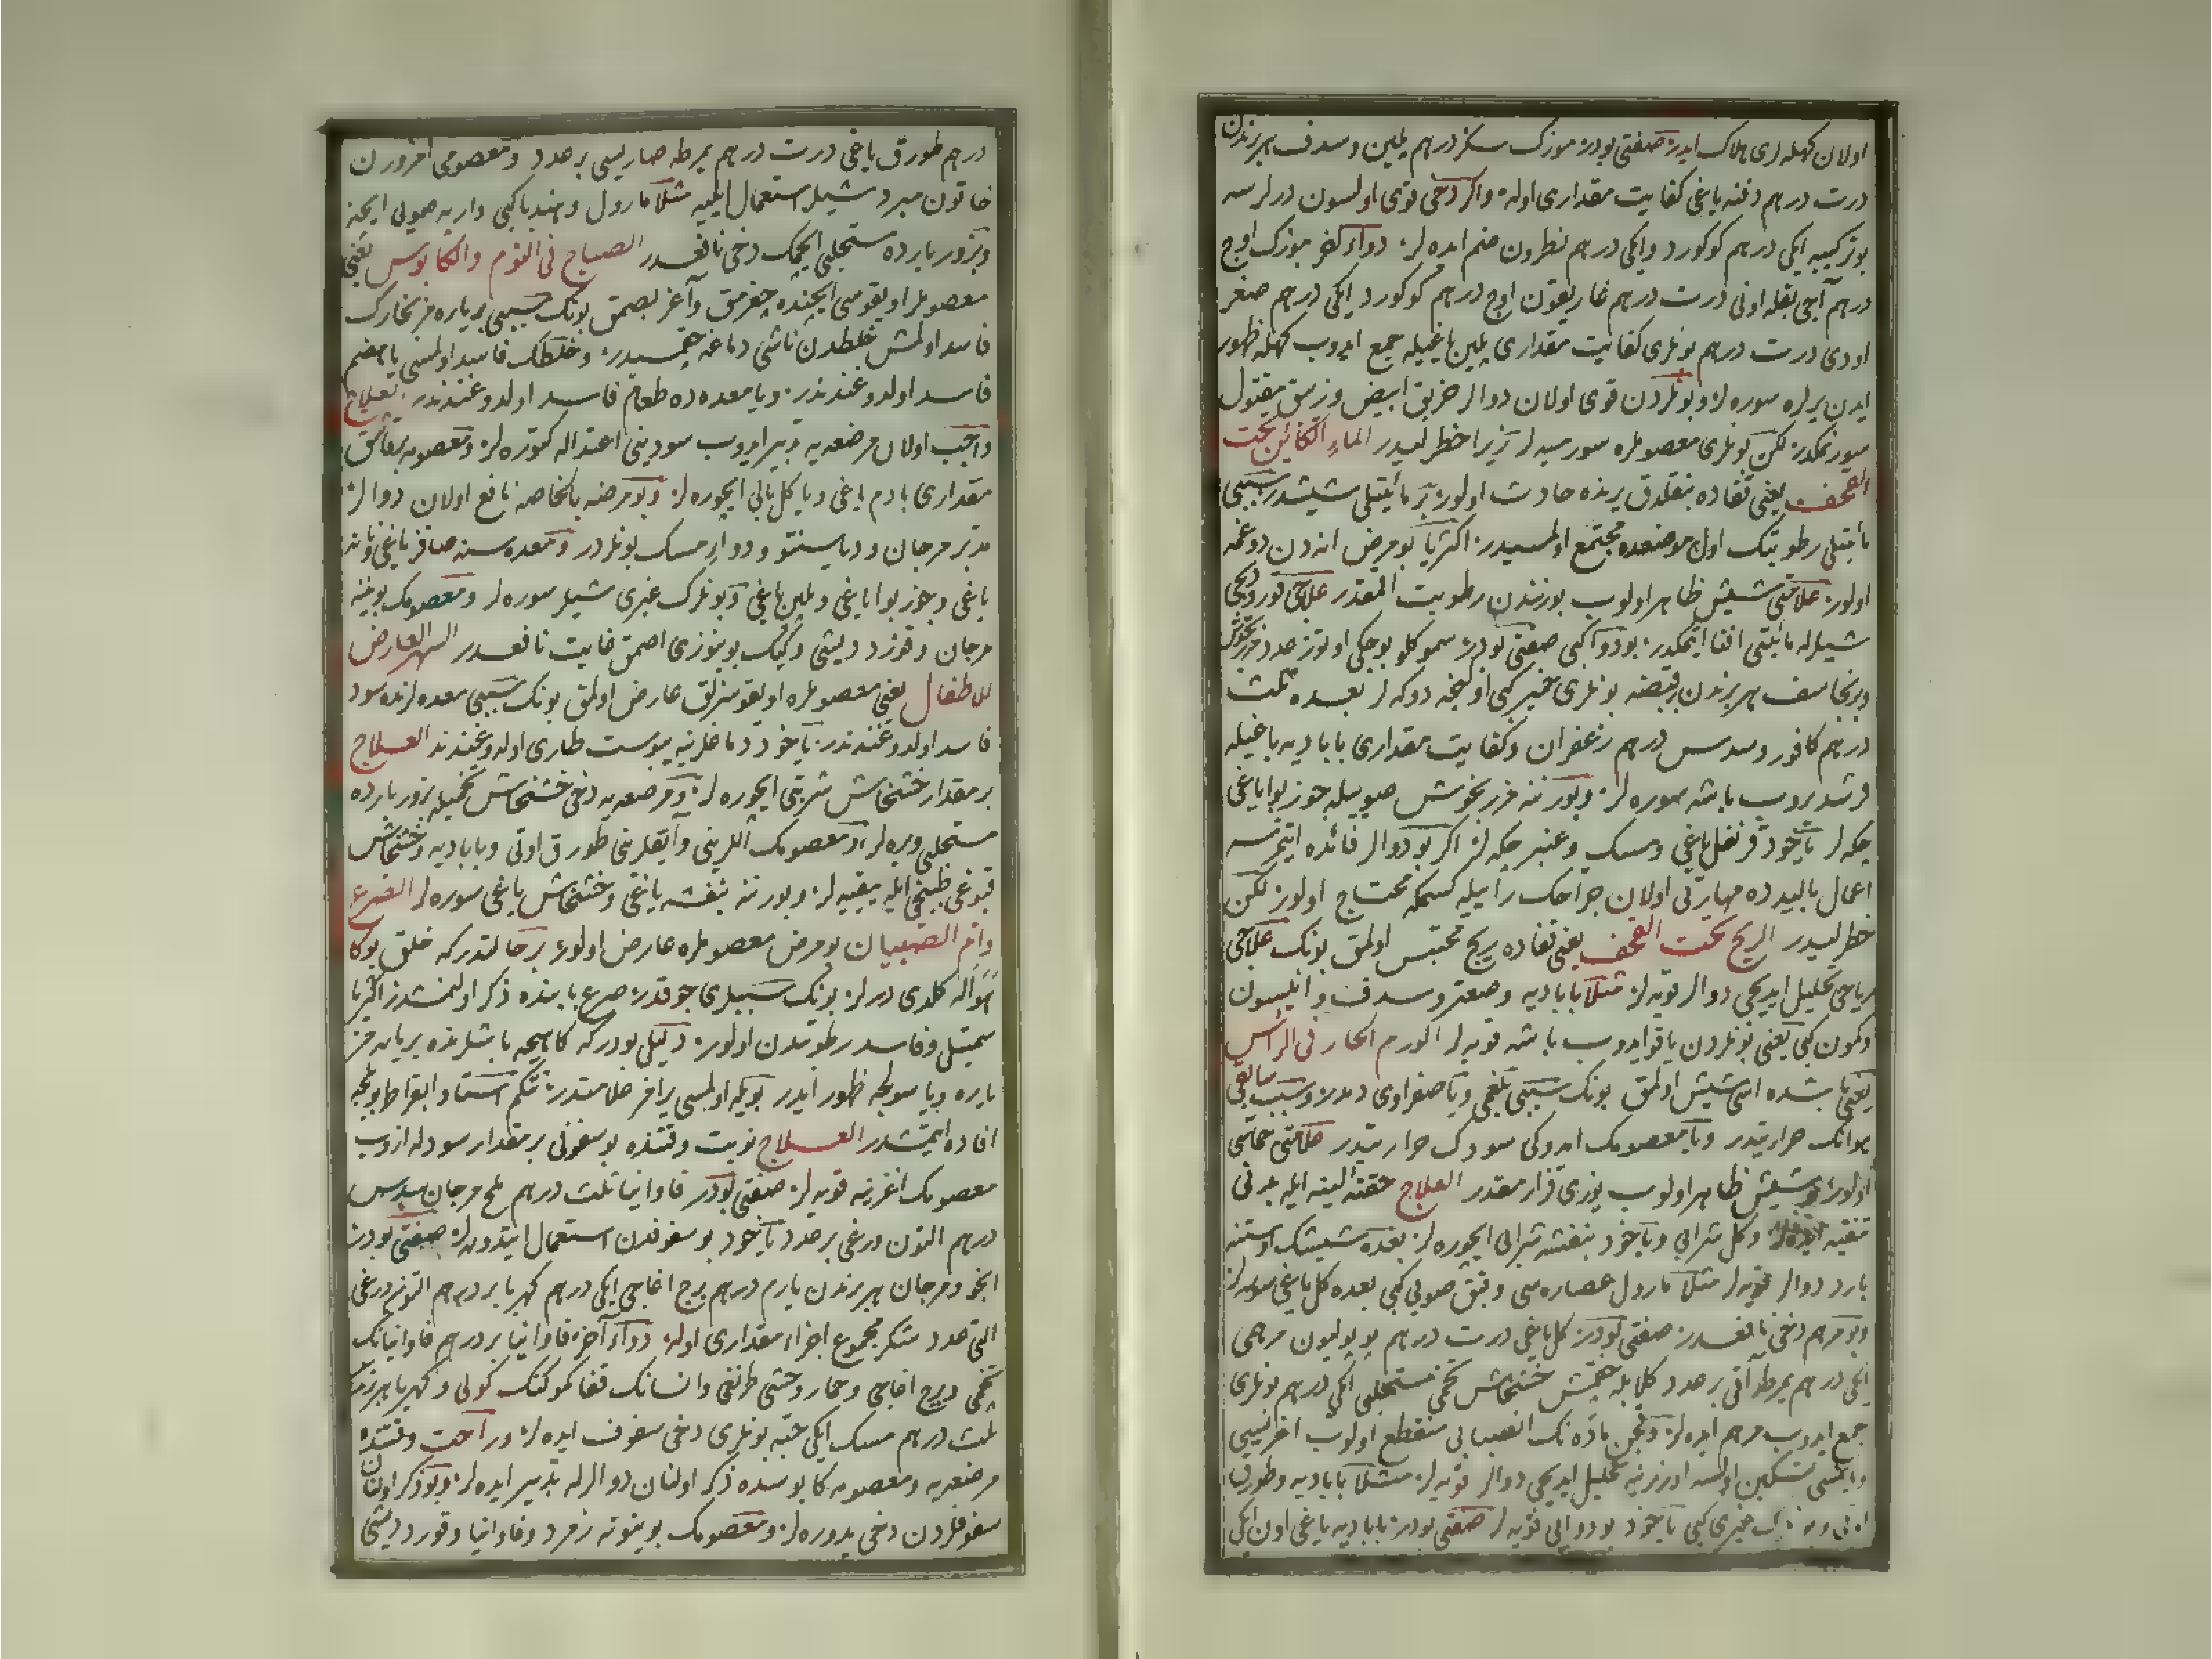 اولان کهله لری هلاک ایدر صفتی بودر موزک سکز درهم یلین وسدف هربرندن
درت درهم دفنه یاغی کفایت مقداری اوله واکر دخی قوی اولسون درلرسه
بوترکیبه ایکی درهم کوکورد وایکی درهم نطرون ضم ایده لر دواء آخر موزک اوچ
درهم آجی بقله اونی درت درهم غاریقون اوچ درهم کوکورد ایکی درهم صغر
اودی درت درهم بونلری کفایت مقداری یلین یاغیله جمع ایدوب کهله ظهور
ایدن یرلره سوره لر وبونلردن قوی اولان دوالر خربق ابیض وزیبق مقتول
سورنمکدر لکن بونلری معصوملره سورمیه لر زیرا خطرلیدر الماء الکائن تحت
القحف یعنی قفاده بنقلدق یرنده حادث اولور بر مائیتلی شیشدر سببی
مائیتلی رطوبتک اول موضعده مجتمع اولمسیدر اکثریا بومرض انه دن دوغمه
اولور علامتی شیش ظاهر اولوب بورنندن رطوبت آقمقدر علاجی قورودیجی
شیلرله مائیتی افنا ایتمکدر بودوا کبی صفتی بودر سموکلو بوجکی اوتوز عدد مرزنخوش
وبرنجاسف هربرندن بر قبضه بونلری خمیر کبی اولنجه دوکه لر بعده ثلث
درهم کافور وسدس درهم زعفران وکفایت مقداری بابادیه یاغیله
قرشدروب باشه سوره لر وبورننه مرزنخوش صوییله جوز بوا یاغی
چکه لر یاخود قرنفل یاغی ومسک وعنبر چکه لر اکر بو دوالر فائده ایتمزسه
اعمال بالیدده مهارتی اولان جراحک رأییله کسمکه محتاج اولور لکن
خطرلیدر الریح تحت القحف یعنی قفاده ریح محتبس اولمق بونک علاجی
ریاحی تحلیل ایدیجی دوالر قویه لر مثلا بابادیه وصعتر وسدف وانیسون
وکمون کبی یعنی بونلردن یاقو ایدوب باشه قویه لر الورم الحار فی الرأس
یعنی باشده اسی شیش اولمق بونک سببی بلغمی ویا صفراوی دمدر وسبب سابقی
هوانک حرارتیدر ویا معصومک امدوکی سودک حرارتیدر علامتی حماسی
اولور وشیش ظاهر اولوب یوزی قزارمقدر العلاج حقنه لینه ایله بدنی
تنقیه ایده لر وکل شرابی ویاخود بنفشه شرابی ایچوره لر بعده شیشک اوستنه
بارد دوالر قویه لر مثلا مارول عصاره سی وبنق صویی کبی بعده کل یاغی سوره لر
وبو مرهم دخی نافعدر صفتی بودر کل یاغی درت درهم پوپولیون مرهمی
ایکی درهم یمرطه آقی بر عدد کلابله چقمش خشخاش تخمی مستحلبی ایکی درهم بونلری
جمع ایدوب مرهم ایده لر وقچن ماده نک انصبابی منقطع اولوب اغریسی
ویانمسی تسکین اولسه اوزرینه تحلیل ایدیجی دوالر قویه لر مثلا بابادیه وطورق
خمیری کبی یاخود بو دوایی قویه لر صفتی بودر بابادیه یاغی اون ایکی
درهم طورق یاغی درت درهم یمرطه صاریسی بر عدد ومعصومی امزورن
خاتون مبرد شیلر استعمال ایلیه مثلا مارول وهندبا کبی واربه صویی ایچه
وبزور بارده مستحلبی ایچمک دخی نافعدر الصیاح فی النوم والکابوس یعنی
معصوملر اویقوسی ایچنده چغرمق وآغر بصمق بونک سببی بریاره مز بخارک
فاسد اولمش غلطدن ناشی دماغه چقمسیدر وخلطک فاسد اولمسی یا هضم
فاسد اولدوغندندر ویا معده ده طعام فاسد اولدوغندندر العلاج
واجب اولان مرضعه یه تدبیر ایدوب سودینی اعتداله کتوره لر ومعصومه بر قاشق
مقداری بادم یاغی ویا کل بالی ایچوره لر وبو مرضه بالخاصه نافع اولان دوالر
مدبر مرجان ودیاسینتو ودواء مسک بونلردر ومعده سنه صاقز یاغی ونانه
یاغی وجوز بوا یاغی ویلین یاغی وبونلرک غیری شیلر سوره لر ومعصومک بویننه
مرجان وقورد دیشی وکیک بوینوزی اصمق غایت نافعدر السهر العارض
للاطفال یعنی معصوملره اویقوسزلق عارض اولمق بونک سببی معده لرنده سود
فاسد اولدوغندندر یاخود دماغلرینه یبوست طاری اولدوغندندر العلاج
بر مقدار خشخاش شربتی ایچوره لر ومرضعه یه دخی خشخاش تخمیله بزور بارده
مستحلبی ویره لر ومعصومک اللرینی وآیقلرینی طورق اوتی وبابادیه وخشخاش
قبوغی طبیخی ایله ییقیه لر وبورننه بنفشه یاغی وخشخاش یاغی سوره لر الصرع
وام الصبیان بومرض معصوملره عارض اولور بر حالتدر که خلق بوکا
حواله کلدی درلر بونک سببلری چوقدر صرع بابنده ذکر اولنمشدر اکثریا
سمیتلی وفاسد رطوبتدن اولور دلیلی بودر که کاهیجه باشلرنده بریاره مز
یاره ویا سولجه ظهور ایدر بویله اولمسی یرامز علامتدر نتکم استاد ابقراط بویله
افاده ایتمشدر العلاج نوبت وقتنده بو سفوفی بر مقدار سودله ازوب
معصومک اغزینه قویه لر صفتی بودر فاوانیا ثلث درهم ملح مرجان سدس
درهم التون ورغی بر عدد یاخود بو سفوفدن استعمال ایتدوره لر صفتی بودر
انجو ومرجان هربرندن یارم درهم برج اغاجی ایکی درهم کهربا بر درهم التون ورغی
التی عدد شکر مجموع اجزاء مقداری اوله دواء آخر فاوانیا بر درهم فاوانیانک
تخمی وبرج اغاجی وحمار وحشی طرنغی وانسانک قفا کموکنک کولی وکهربا هربرندن
ثلث درهم مسک ایکی حبه بونلری دخی سفوف ایده لر وراحت وقتنده
مرضعه یه ومعصومه کابوسده ذکر اولنان دوالرله تدبیر ایده لر وبو ذکر اولنان
سفوفلردن دخی یدوره لر ومعصومک بوینونه زمرد وفاوانیا وقورد دیشی